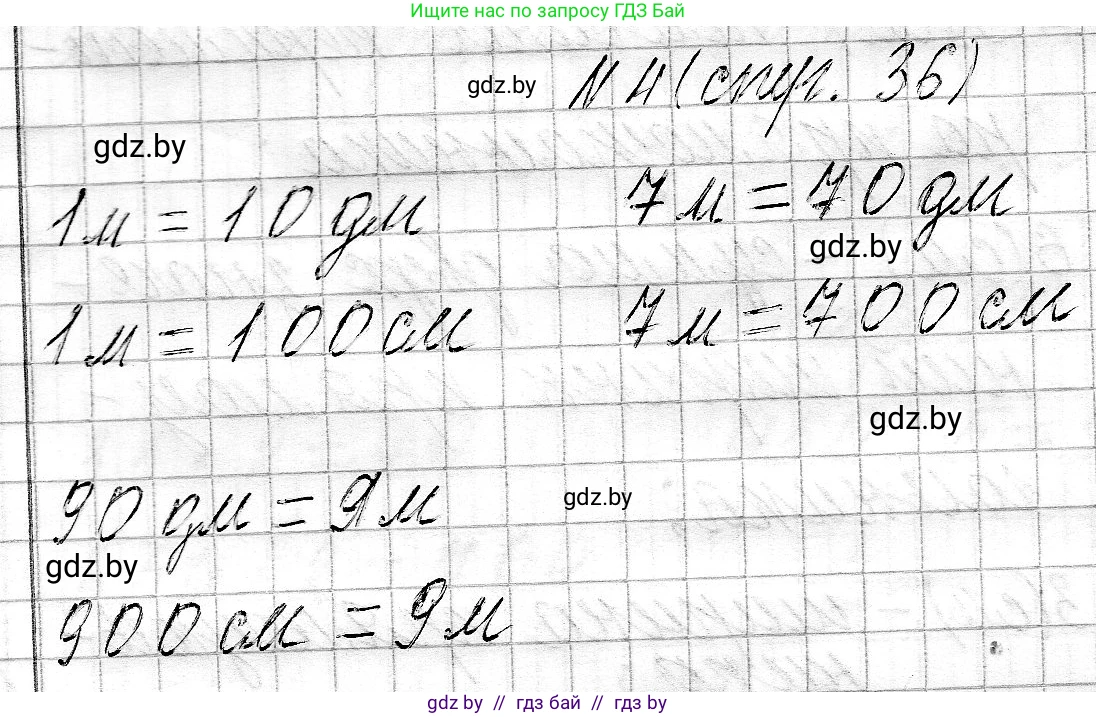 Ищите нас по запросу ГДЗ Бай
gdz.by
N 4 (стр. 36)
gdz.by
1 м = 10 дм 7 м = 70 дм
gdz.by
1 м = 100 см 7 м = 700 см
gdz.by
90 дм = 9 м
gdz.by
gdz.by
900 см = 9 м
gdz.by // гдз бай // гдз by